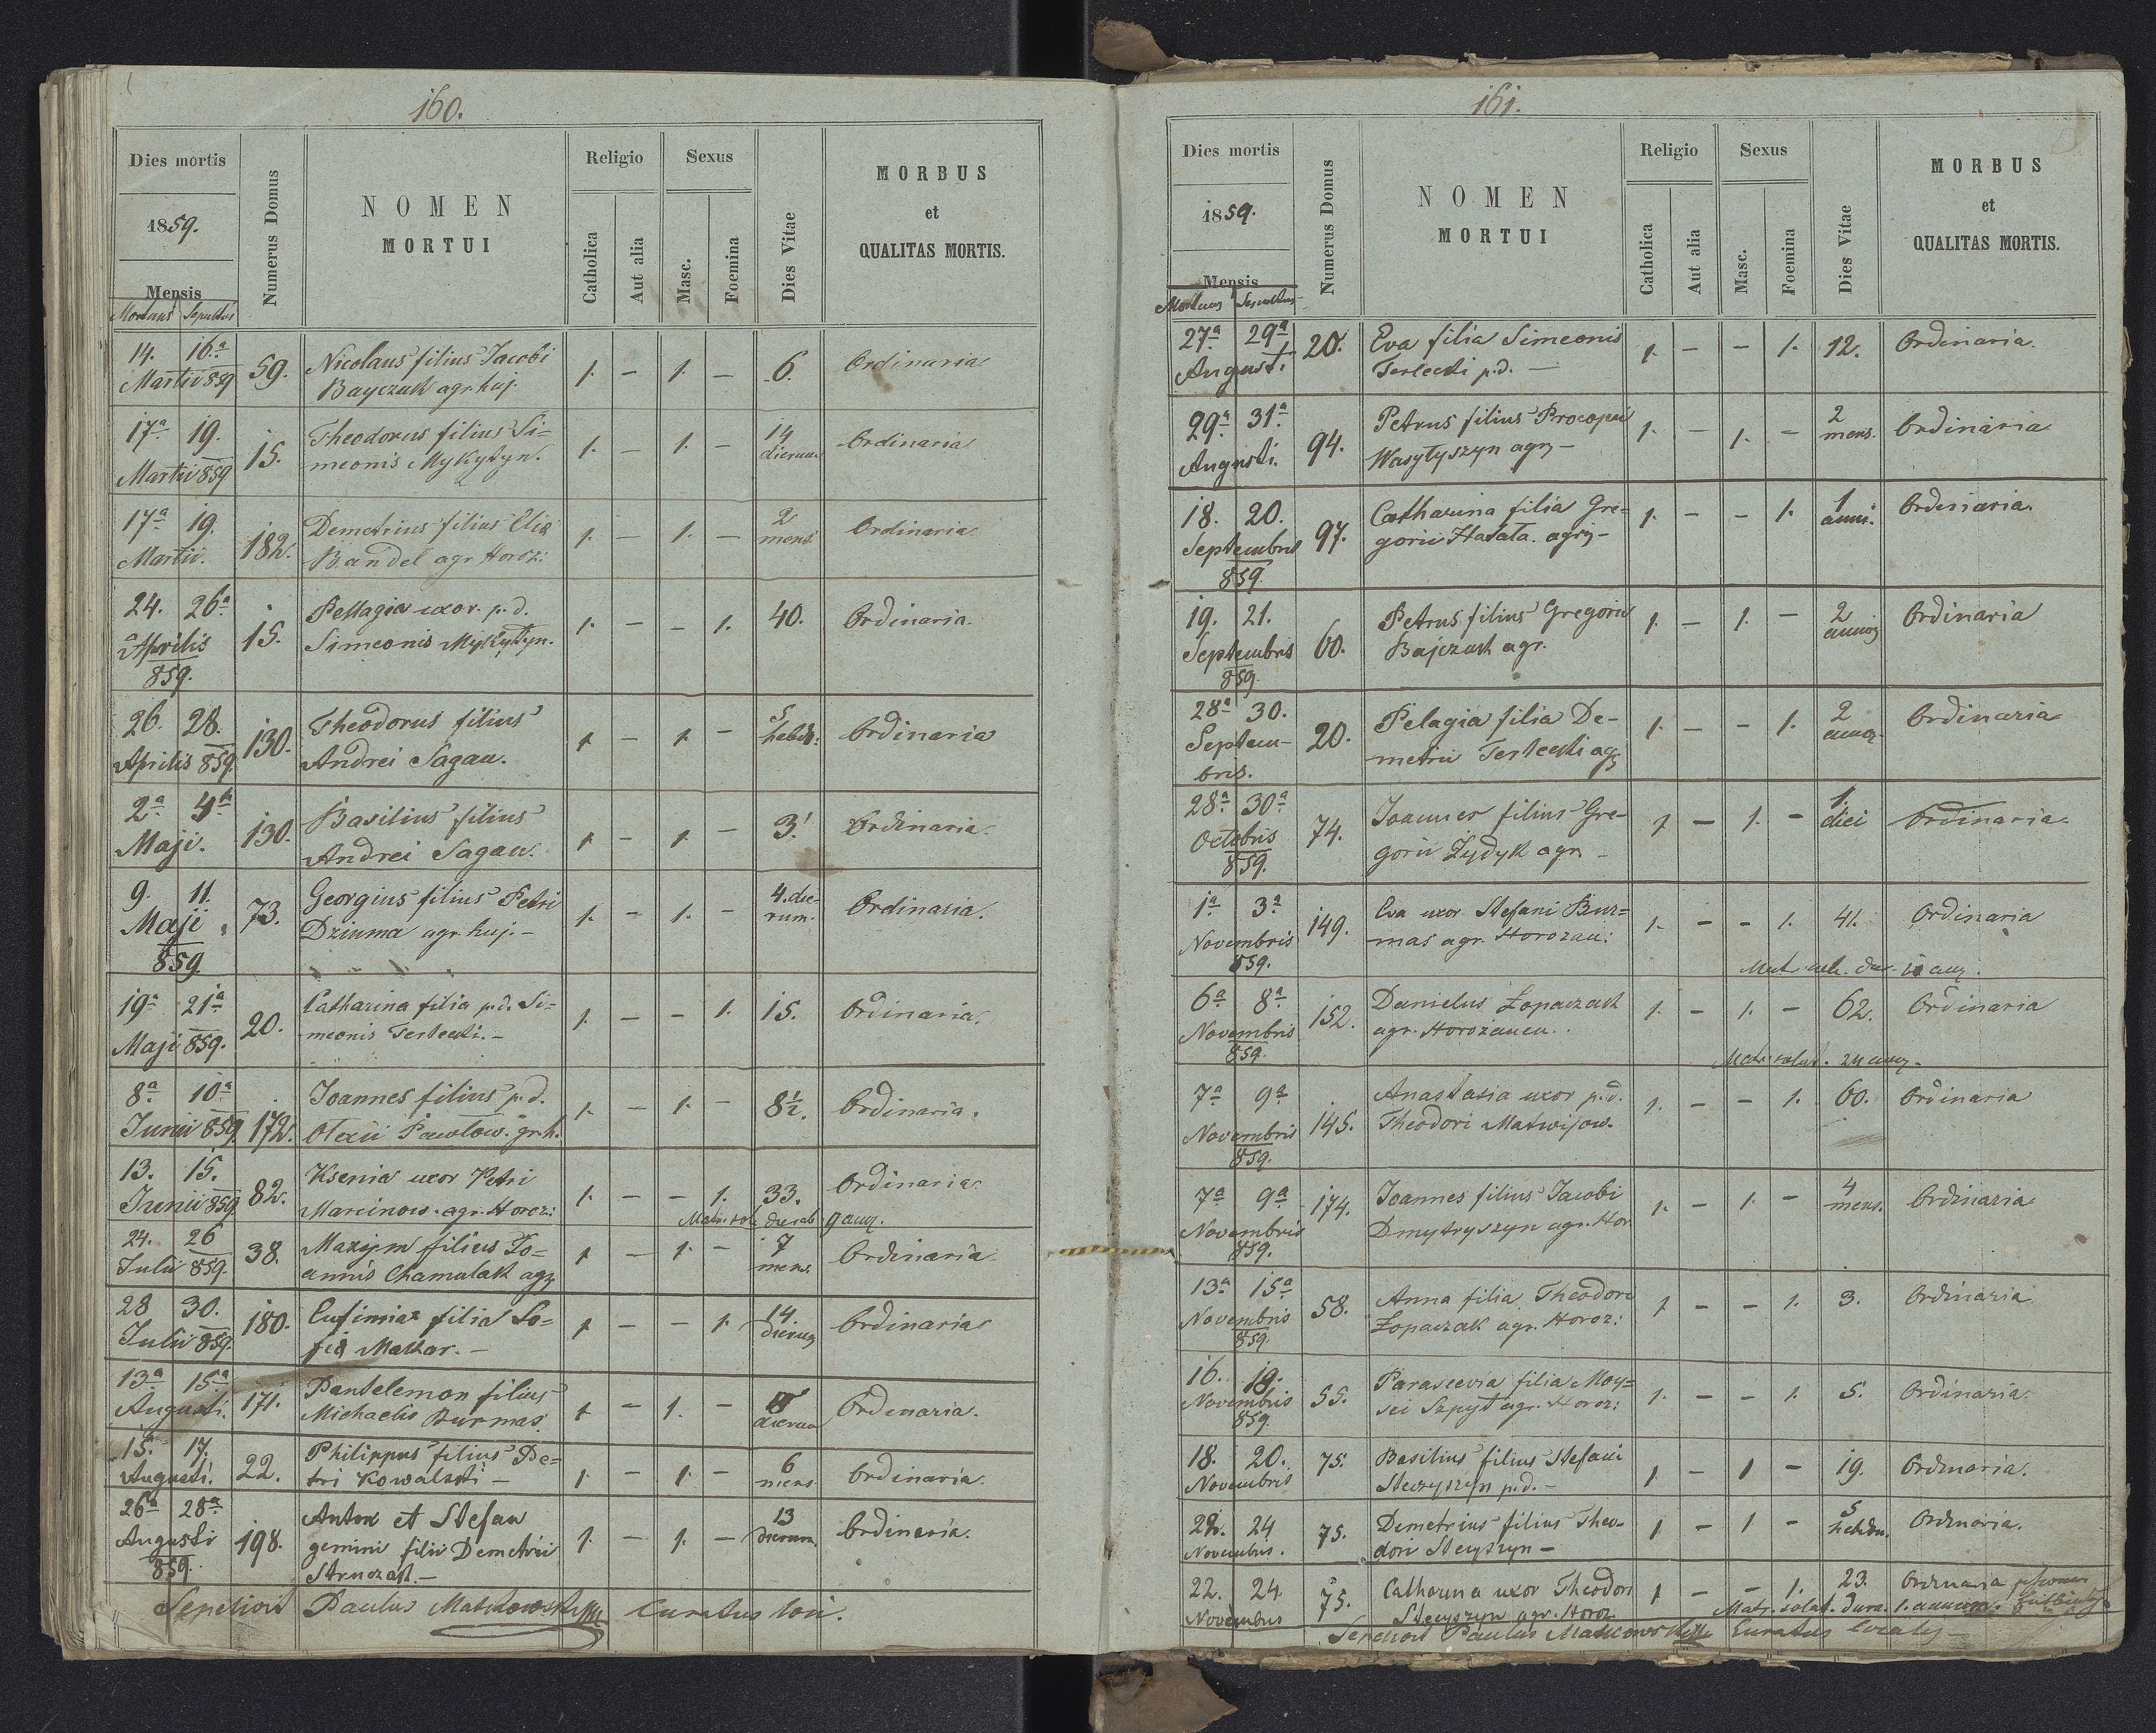 160.
Dies mortis
1859.
Mensis
Mortuus Sepultus
Numerus Domus
NOMEN
MORTUI
Religio
Catholica
Aut alia
Sexus
Masc.
Foemina
Dies Vitae
MORBUS
et
QUALITAS MORTIS.
14. 16.a
Martii 859
59.
Nicolaus filius Jacobi
Bayczuk agr. huj.
1. - 1. - 6. Ordinaria
17a 19.
Martii 859
15.
Theodorus filius Si=
meonis Mykytyn.
1. - 1. - 14
dierum
Ordinaria
17a 19.
Martii.
182.
Demetrius filius Eliæ
Bandel agr Horoz:
1. - 1. - 2
mens.
Ordinaria
24. 26a
Aprilis
859.
15.
Pellagia uxor p.d.
Simeonis Mykytyn.
1. - - 1. 40. Ordinaria.
26. 28.
Aprilis 859.
130.
Theodorus filius
Andrei Sagan.
1 - 1. - 5
hebd:
Ordinaria
2a 4a
Maji.
130.
Basilius filius
Andrei Sagan.
1 - 1. - 3. Ordinaria.
9. 11.
Maji
859.
73.
Georgius filius Petri
Dziuma agr. huj. -
1. - 1. - 4. die-
rum.
Ordinaria.
19a 21a
Maji 859.
20.
Catharina filia p.d. Si=
meonis Terlecki. -
1. - - 1. 15. Ordinaria.
8a 10a
Junii 859.
172.
Joannes filius p.d.
Olexii Pawlow. gr.h.
1. - 1. - 8½. Ordinaria.
13. 15.
Junii 859.
82.
Ksenia uxor Petri
Marcinow. agr. Horoz:
1. - - 1. 33. Ordinaria.
24. 26
Julii 859.
38.
Maxym filius Jo=
annis Chamulak agr.
1 - 1. - 7
mens.
Ordinaria
28 30.
Julii 859.
180.
Eufimia filia So=
fiæ Makar. -
1 - - 1. 14
dierum
Ordinaria
13a 15.a
Augusti.
171.
Pantelemon filius
Michaelis Burmas.
1 - 1. -
dierum
Ordinaria.
15. 17.
Augusti.
22.
Philippus filius Pe=
tri Kowalski -
1. - 1. - 6
mens
Ordinaria.
26a 28a
Augusti
859.
198.
Anton et Stefan
gemini filii Demetrii
Struczak. -
1. - 1. - 13
dierum.
Ordinaria.
Sepelivit Paulus Matkowski Curatus loci.
161.
Dies mortis
1859.
Mensis
Mortuus Sepultus
Numerus Domus
NOMEN
MORTUI
Religio
Catholica
Aut alia
Sexus
Masc.
Foemina
Dies Vitae
MORBUS
et
QUALITAS MORTIS.
27a 29a
Augusti
20.
Eva filia Simeonis
Terlecki p.d. -
1. - - 1. 12. Ordinaria.
29a 31a
Augusti.
94.
Petrus filius Procopii
Wasylyszyn agr -
1. - 1. - 2
mens.
Ordinaria
18. 20.
Septembris
859.
97.
Catharina filia Gre=
gorii Hałata. agr -
1. - - 1. 1
anni.
Ordinaria.
19. 21.
Septembris
859.
60.
Petrus filius Gregorii
Bajczuk agr.
1. - 1. - 2
annor
Ordinaria
28a 30.
Septem-
bris.
20.
Pelagia filia De-
metrii Terlecki agr
1. - - 1. 2
annor
Ordinaria
28a 30a
Octobris
859.
74.
Joannes filius Gre-
gorii Żydyk agr. -
1 - 1. - 1.
diei
Ordinaria.
1a 3a
Novembris
859.
149.
Eva uxor Stefani Bur=
mas agr. Horozan:
1. - - 1. 41. Ordinaria
6a 8a
Novembris
859.
152.
Danielus Łopaczak
agr. Horozanen.
1. - 1. - 62. Ordinaria
7a 9a
Novembris
859.
145.
Anastasia uxor p.d.
Theodori Matwijow.
1. - - 1. 60. Ordinaria
7a 9a
Novembris
859.
174.
Joannes filius Jacobi
Dmytryszyn agr. Hor.
1. - 1. - 4
mens.
Ordinaria
13a 15a
Novembris
859.
58.
Anna filia Theodori
Łopaczak agr. Horoz:
1 - - 1. 3. Ordinaria
16. 19.
Novembris
859.
55.
Parascevia filia Moy=
sei Szpyt agr. Horoz:
1. - - 1. 5. Ordinaria.
18. 20.
Novembris
75.
Basilius filius Stefani
Stecyszyn p.d. -
1 - 1 - 19. Ordinaria.
22. 24
Novembris.
75.
Demetrius filius Theo-
dori Stecyszyn -
1 - 1 - 5
hebdo.
Ordinaria.
22. 24
Novembris
75.
Catharina uxor Theodori
Stecyszyn agr. Horoz
1 - - 1. 23. Ordinaria
Sepelivit Paulus Matkowski Curatus localis